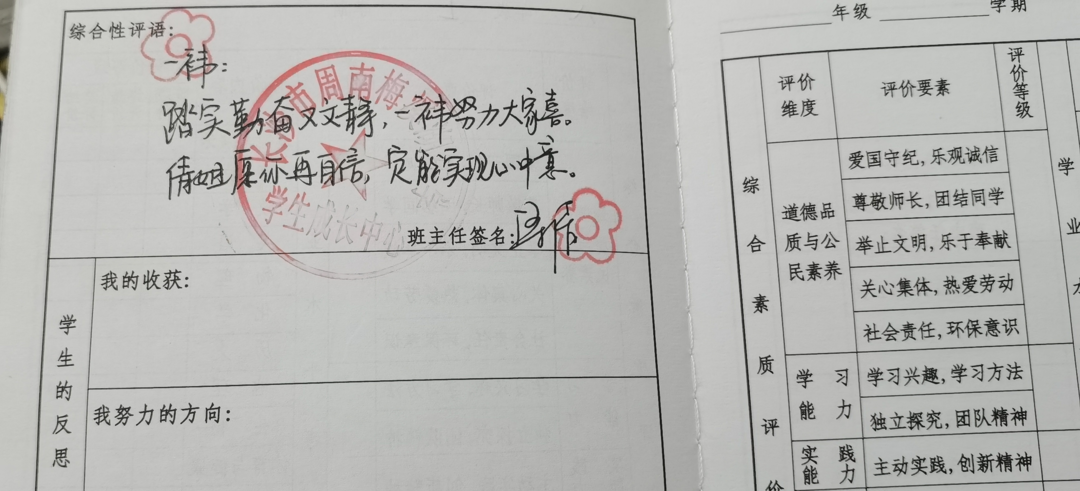 综合性评语:
一祎:
踏实勤奋又文静,一祎努力大家喜。
倩姐愿你再自信,定能实现心中意。
长沙市周南梅
学生成长中心
班主任签名:
学生的反思
我的收获:
我努力的方向:
年级 学期
综合素质评价
评价维度
评价要素
评价等级
道德品质与公民素养
爱国守纪,乐观诚信
尊敬师长,团结同学
举止文明,乐于奉献
关心集体,热爱劳动
社会责任,环保意识
学习能力
学习兴趣,学习方法
独立探究,团队精神
实践能力
主动实践,创新精神
学业